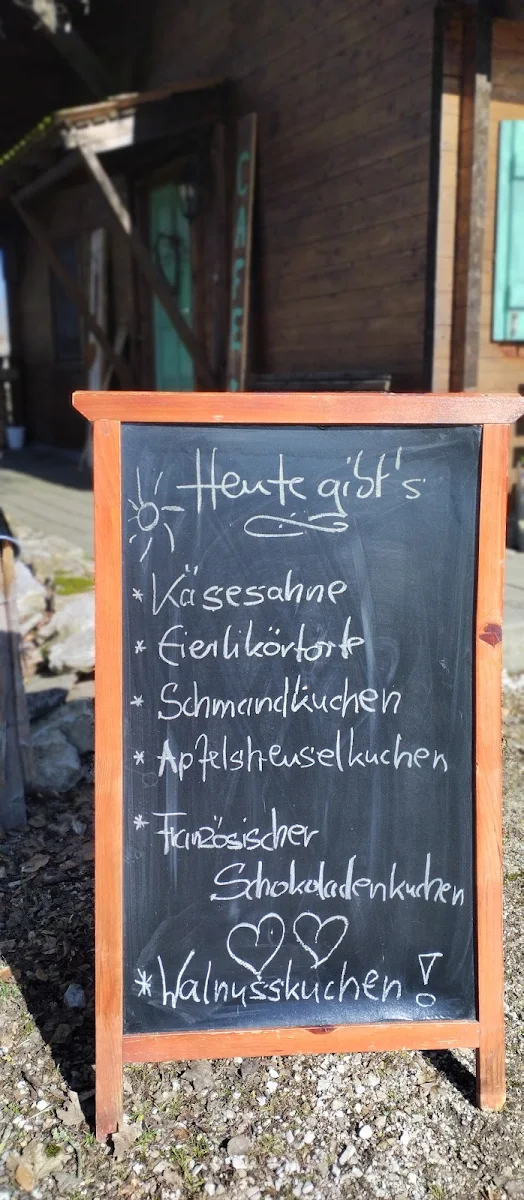 CAFE
Heute gibt's
* Käsesahne
* Eierlikörtorte
* Schmandkuchen
* Apfelstreuselkuchen
* Französischer
Schokoladenkuchen
* Walnusskuchen !